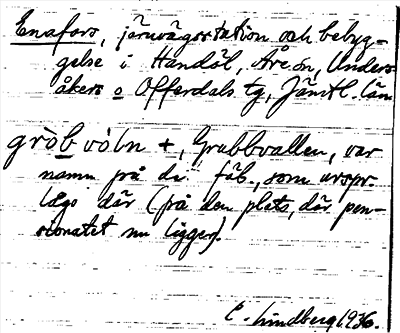 Enafors, järnvägsstation och bebyg-
gelse i Handöl, Åre sn, Unders-
åkers o Offerdals tg, Jämtl. län
gròb vò̀ln +, Grubbvallen, var
namn på de fäb., som urspr.
lågo där (på den plats, där pen-
sionatet nu ligger).
E. Lindberg 1936.